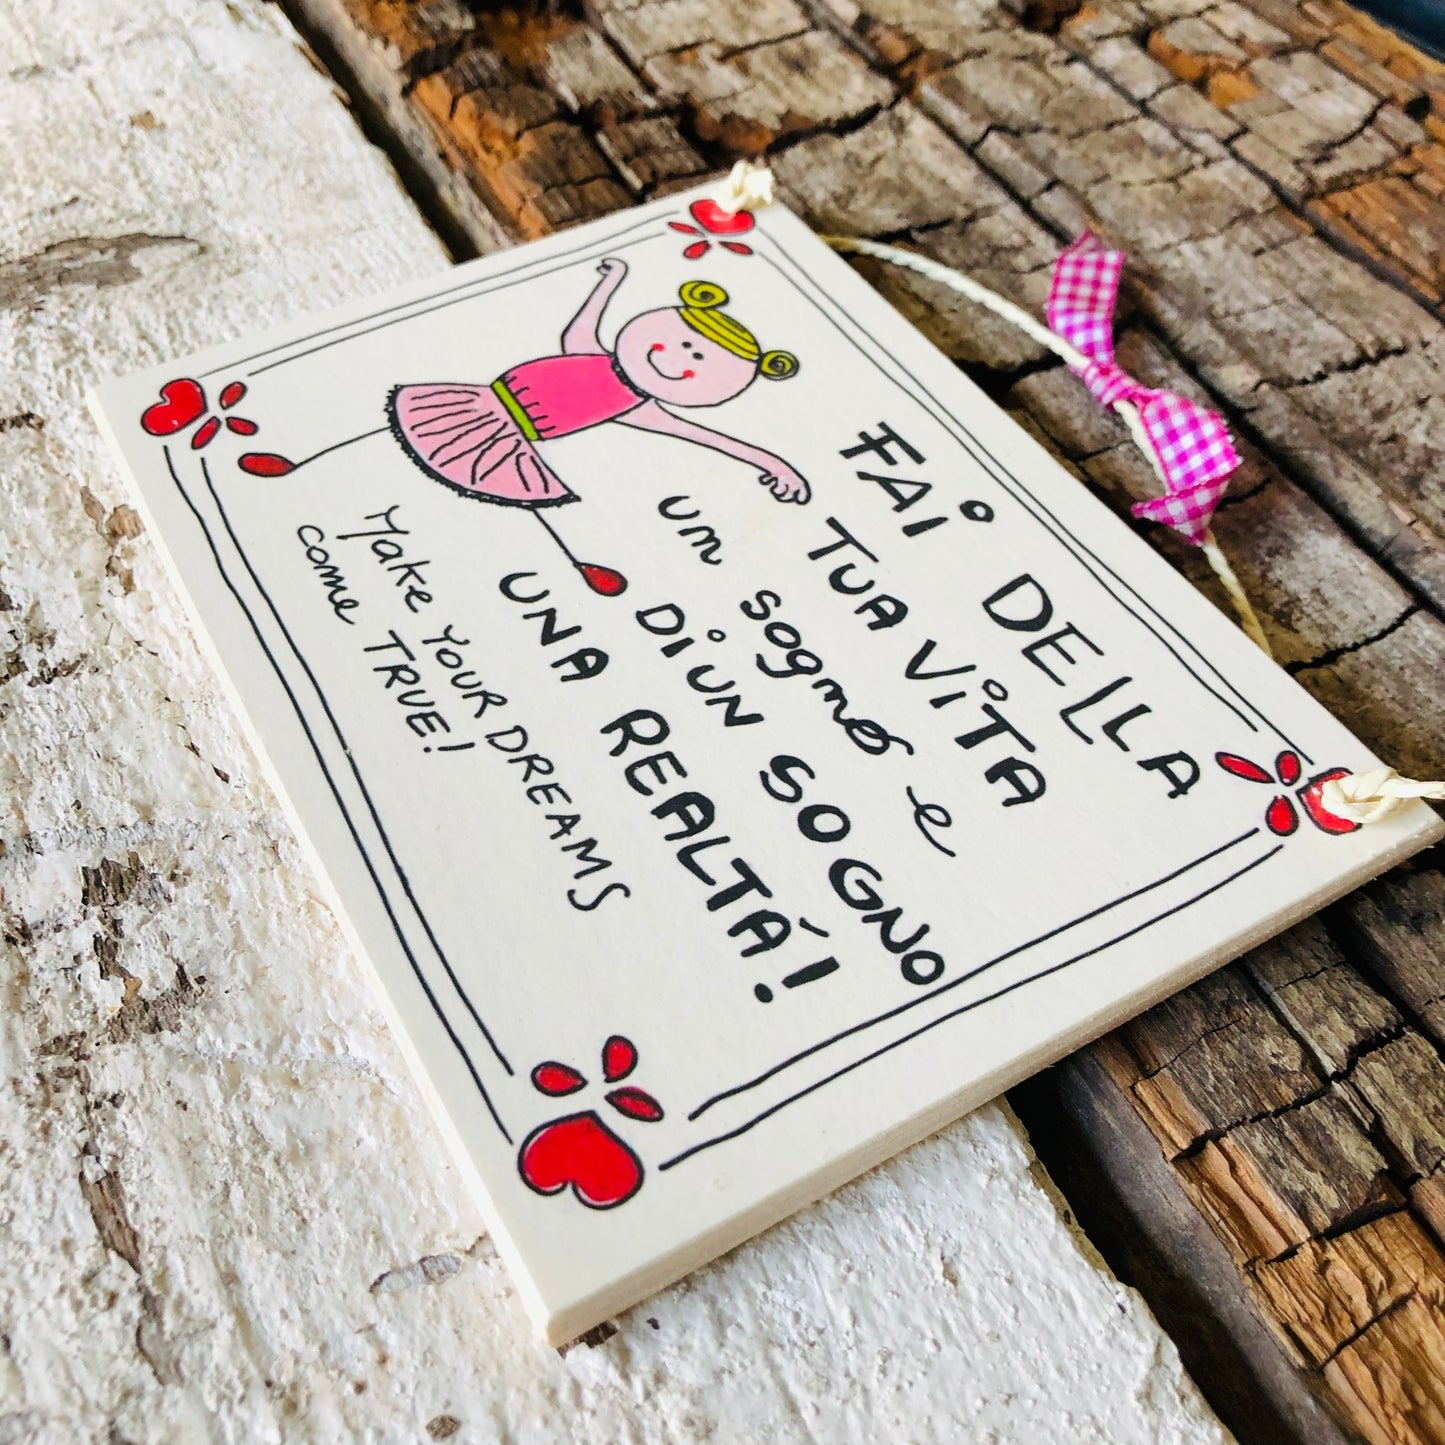 FAi DELLA
TUA ViTA
um sogno e
Di UN SOGNO
UNA REALTÁ!
Make YOUR DREAMS
come TRUE!